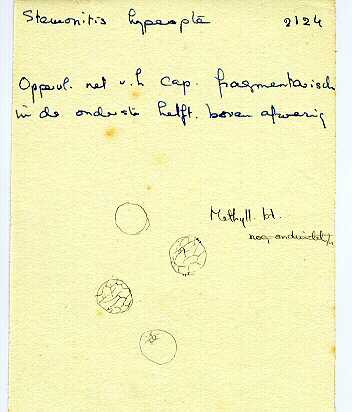 Stemonitis hyperopta 2124
Oppervl. net v.h cap. fragmentarisch
in de onderste helft. boven afwezig
Methyll. bl.
nog onduidel/